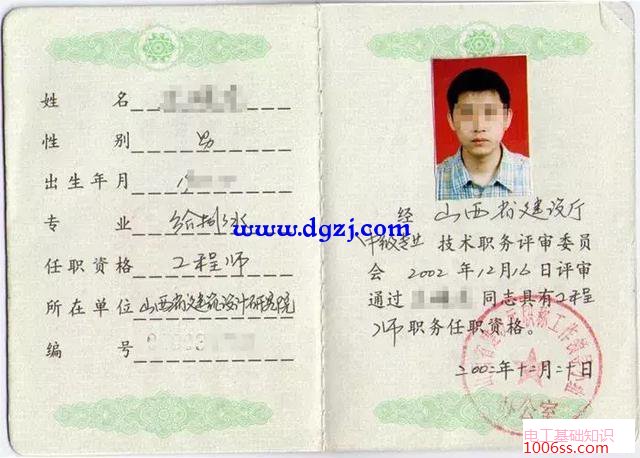 姓名
性别 男
出生年月
专业 给排水
任职资格 工程师
所在单位 山西省建筑设计研究院
编号
经 山西省建设厅
中级专业 技术职务评审委员
会 2002 年 12 月 16 日评审
通过 同志具有 工程
师 职务任职资格。
二00二年十二月二十日
办公室
www.dgzj.com
电工基础知识
1006ss.com